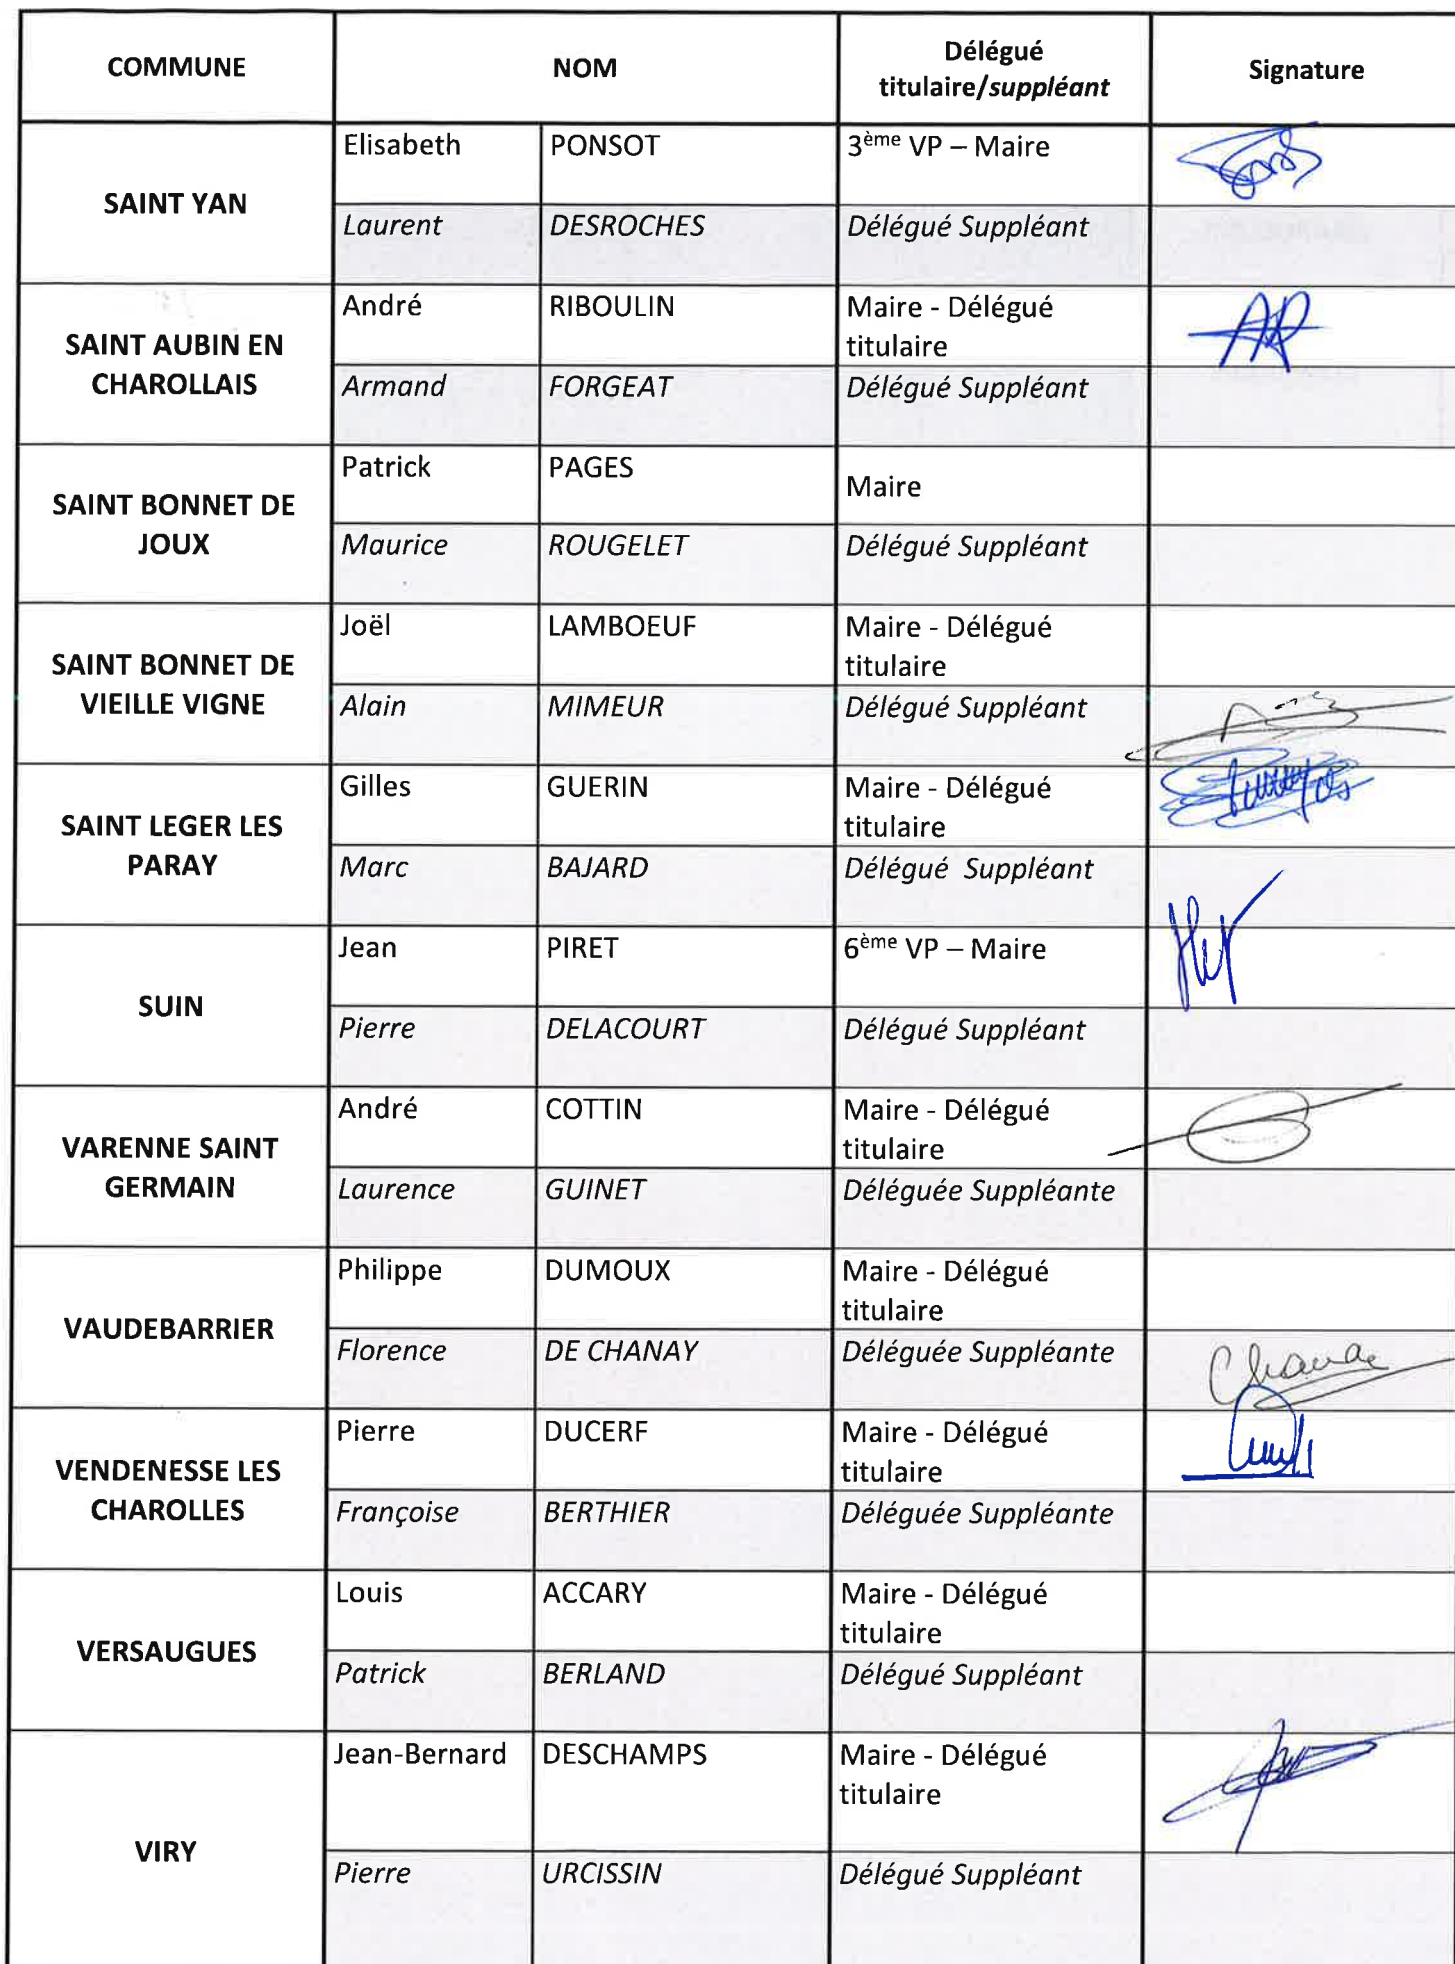 COMMUNE NOM Délégué titulaire/suppléant Signature
SAINT YAN
Elisabeth PONSOT 3ème VP – Maire
Laurent DESROCHES Délégué Suppléant
SAINT AUBIN EN CHAROLLAIS
André RIBOULIN Maire - Délégué titulaire AR
Armand FORGEAT Délégué Suppléant
SAINT BONNET DE JOUX
Patrick PAGES Maire
Maurice ROUGELET Délégué Suppléant
SAINT BONNET DE VIEILLE VIGNE
Joël LAMBOEUF Maire - Délégué titulaire
Alain MIMEUR Délégué Suppléant
SAINT LEGER LES PARAY
Gilles GUERIN Maire - Délégué titulaire
Marc BAJARD Délégué Suppléant
SUIN
Jean PIRET 6ème VP – Maire
Pierre DELACOURT Délégué Suppléant
VARENNE SAINT GERMAIN
André COTTIN Maire - Délégué titulaire
Laurence GUINET Déléguée Suppléante
VAUDEBARRIER
Philippe DUMOUX Maire - Délégué titulaire
Florence DE CHANAY Déléguée Suppléante
VENDENESSE LES CHAROLLES
Pierre DUCERF Maire - Délégué titulaire
Françoise BERTHIER Déléguée Suppléante
VERSAUGUES
Louis ACCARY Maire - Délégué titulaire
Patrick BERLAND Délégué Suppléant
VIRY
Jean-Bernard DESCHAMPS Maire - Délégué titulaire
Pierre URCISSIN Délégué Suppléant